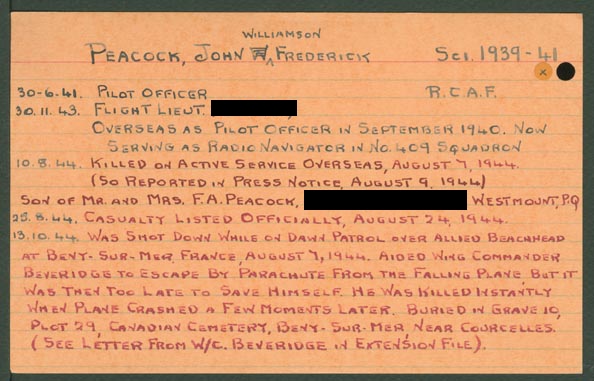 WILLIAMSON
PEACOCK, JOHN W, FREDERICK SCI. 1939-41
x
30-6.41. PILOT OFFICER R.C.A.F.
30.11.43. FLIGHT LIEUT.
OVERSEAS AS PILOT OFFICER IN SEPTEMBER 1940. NOW
SERVING AS RADIO NAVIGATOR IN NO. 409 SQUADRON
10.8.44. KILLED ON ACTIVE SERVICE OVERSEAS, AUGUST 7, 1944.
(SO REPORTED IN PRESS NOTICE, AUGUST 9, 1944)
SON OF MR. AND MRS. F.A. PEACOCK, WESTMOUNT, P.Q
25.8.44. CASUALTY LISTED OFFICIALLY, AUGUST 24, 1944.
13.10.44. WAS SHOT DOWN WHILE ON DAWN PATROL OVER ALLIED BEACHHEAD
AT BENY-SUR-MER, FRANCE, AUGUST 7, 1944. AIDED WING COMMANDER
BEVERIDGE TO ESCAPE BY PARACHUTE FROM THE FALLING PLANE BUT IT
WAS THEN TOO LATE TO SAVE HIMSELF. HE WAS KILLED INSTANTLY
WHEN PLANE CRASHED A FEW MOMENTS LATER. BURIED IN GRAVE 10,
PLOT 29, CANADIAN CEMETERY, BENY-SUR-MER NEAR COURCELLES.
(SEE LETTER FROM W/C. BEVERIDGE IN EXTENSION FILE).